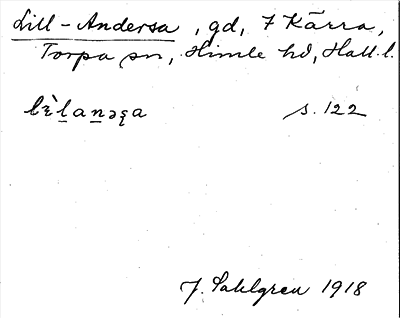 Lill-Andersa, gd, 7 Kärra,
Torpa sn, Himle hd, Hall. l.
s. 122
J. Sahlgren 1918